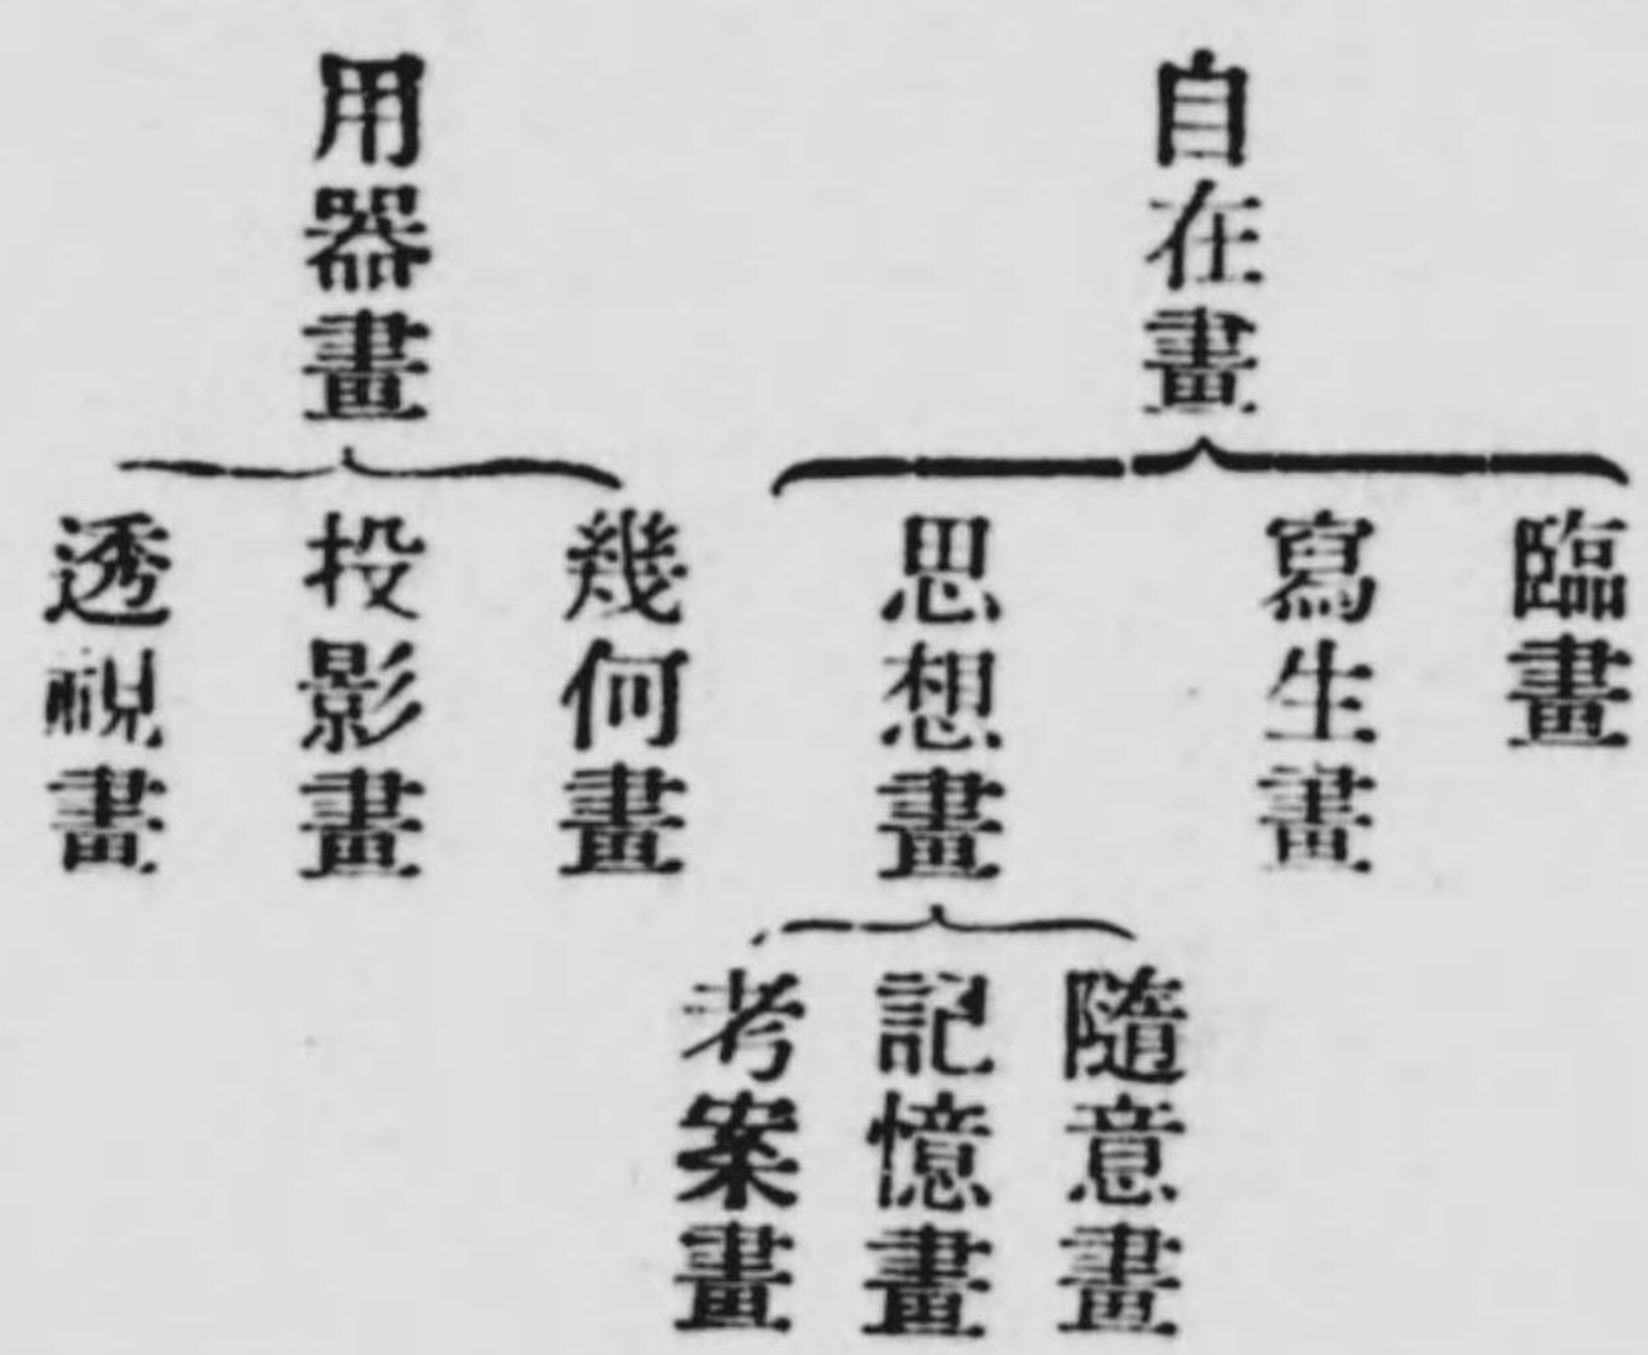 自在畫
臨畫
寫生畫
思想畫
隨意畫
記憶畫
考案畫
用器畫
幾何畫
投影畫
透視畫